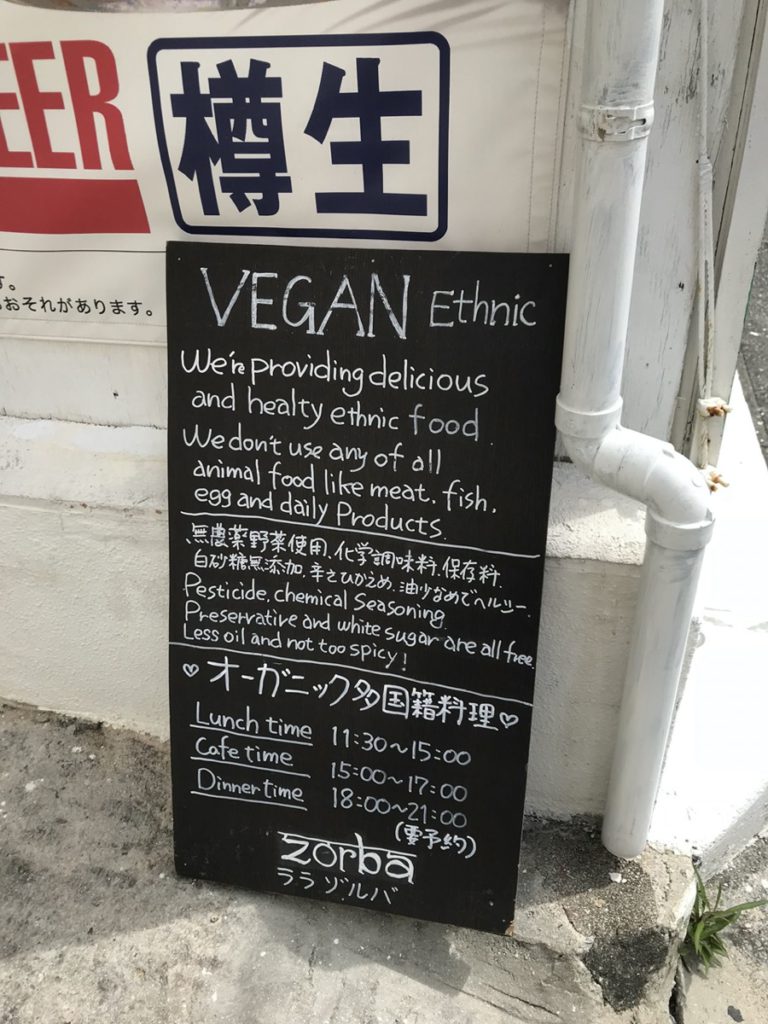 EER
樽生
す。
おそれがあります。
VEGAN Ethnic
We're providing delicious
and healty ethnic food.
We don't use any of all
animal food like meat. fish.
egg and daily Products.
無農薬野菜使用.化学調味料.保存料.
白砂糖無添加.辛さひかえめ.油少なめでヘルシー.
Pesticide, chemical Seasoning.
Preservative and white sugar are all free.
Less oil and not too spicy!
♡オーガニック多国籍料理♡
Lunch time 11:30~15:00
Cafe time 15:00~17:00
Dinner time 18:00~21:00
(要予約)
zorba
ララ ゾルバ